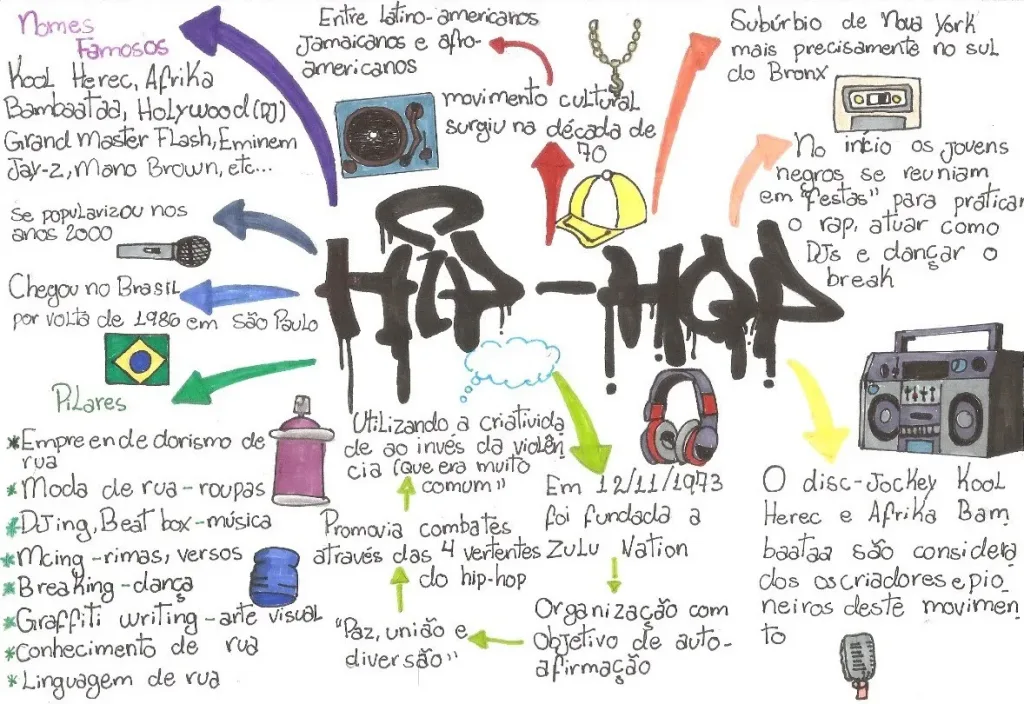 Nomes
Famosos
Kool Herec, Afrika
Bambaataa, Holywood (DJ)
Grand Master Flash, Eminem
Jay-z, Mano Brown, etc...
Entre latino-americanos
jamaicanos e afro-
americanos
movimento cultural
surgiu na década de
70
Subúrbio de Nova York
mais precisamente no sul
do Bronx
No início os jovens
negros se reuniam
em "festas" para praticar
o rap, atuar como
DJs e dançar o
break
Se popularizou nos
anos 2000
Chegou no Brasil
por volta de 1986 em São Paulo
HIP-HOP
Pilares
*Empreendedorismo de
rua
*Moda de rua - roupas
*DJing, Beat box - música
*Mcing - rimas, versos
*Breaking - dança
*Graffiti writing - arte visual
*Conhecimento de rua
*Linguagem de rua
Utilizando a criativida
de ao invés da violên
cia (que era muito
comum"
Promovia combates
através das 4 vertentes
do hip-hop
"Paz, união e
diversão"
Em 12/11/1973
foi fundada a
Zulu Nation
Organização com
objetivo de auto-
afirmação
O disc-Jockey Kool
Herec e Afrika Bam
baataa são considera
dos os criadores e pio
neiros deste movimen
to